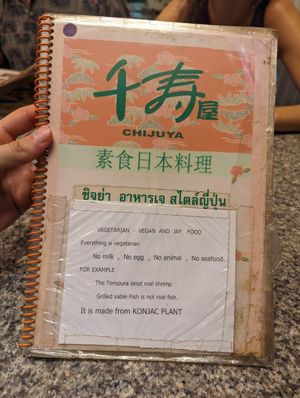 千寿屋
CHIJUYA
素食日本料理
ชิจูย่า อาหารเจ สไตล์ญี่ปุ่น
VEGETARIAN - VEGAN AND JAY FOOD
Everything is vegetarian
No milk , No egg , No animal , No seafood.
FOR EXAMPLE
The Tempura isnot real shrimp
Grilled sable Fish is not real fish.
It is made from KONJAC PLANT